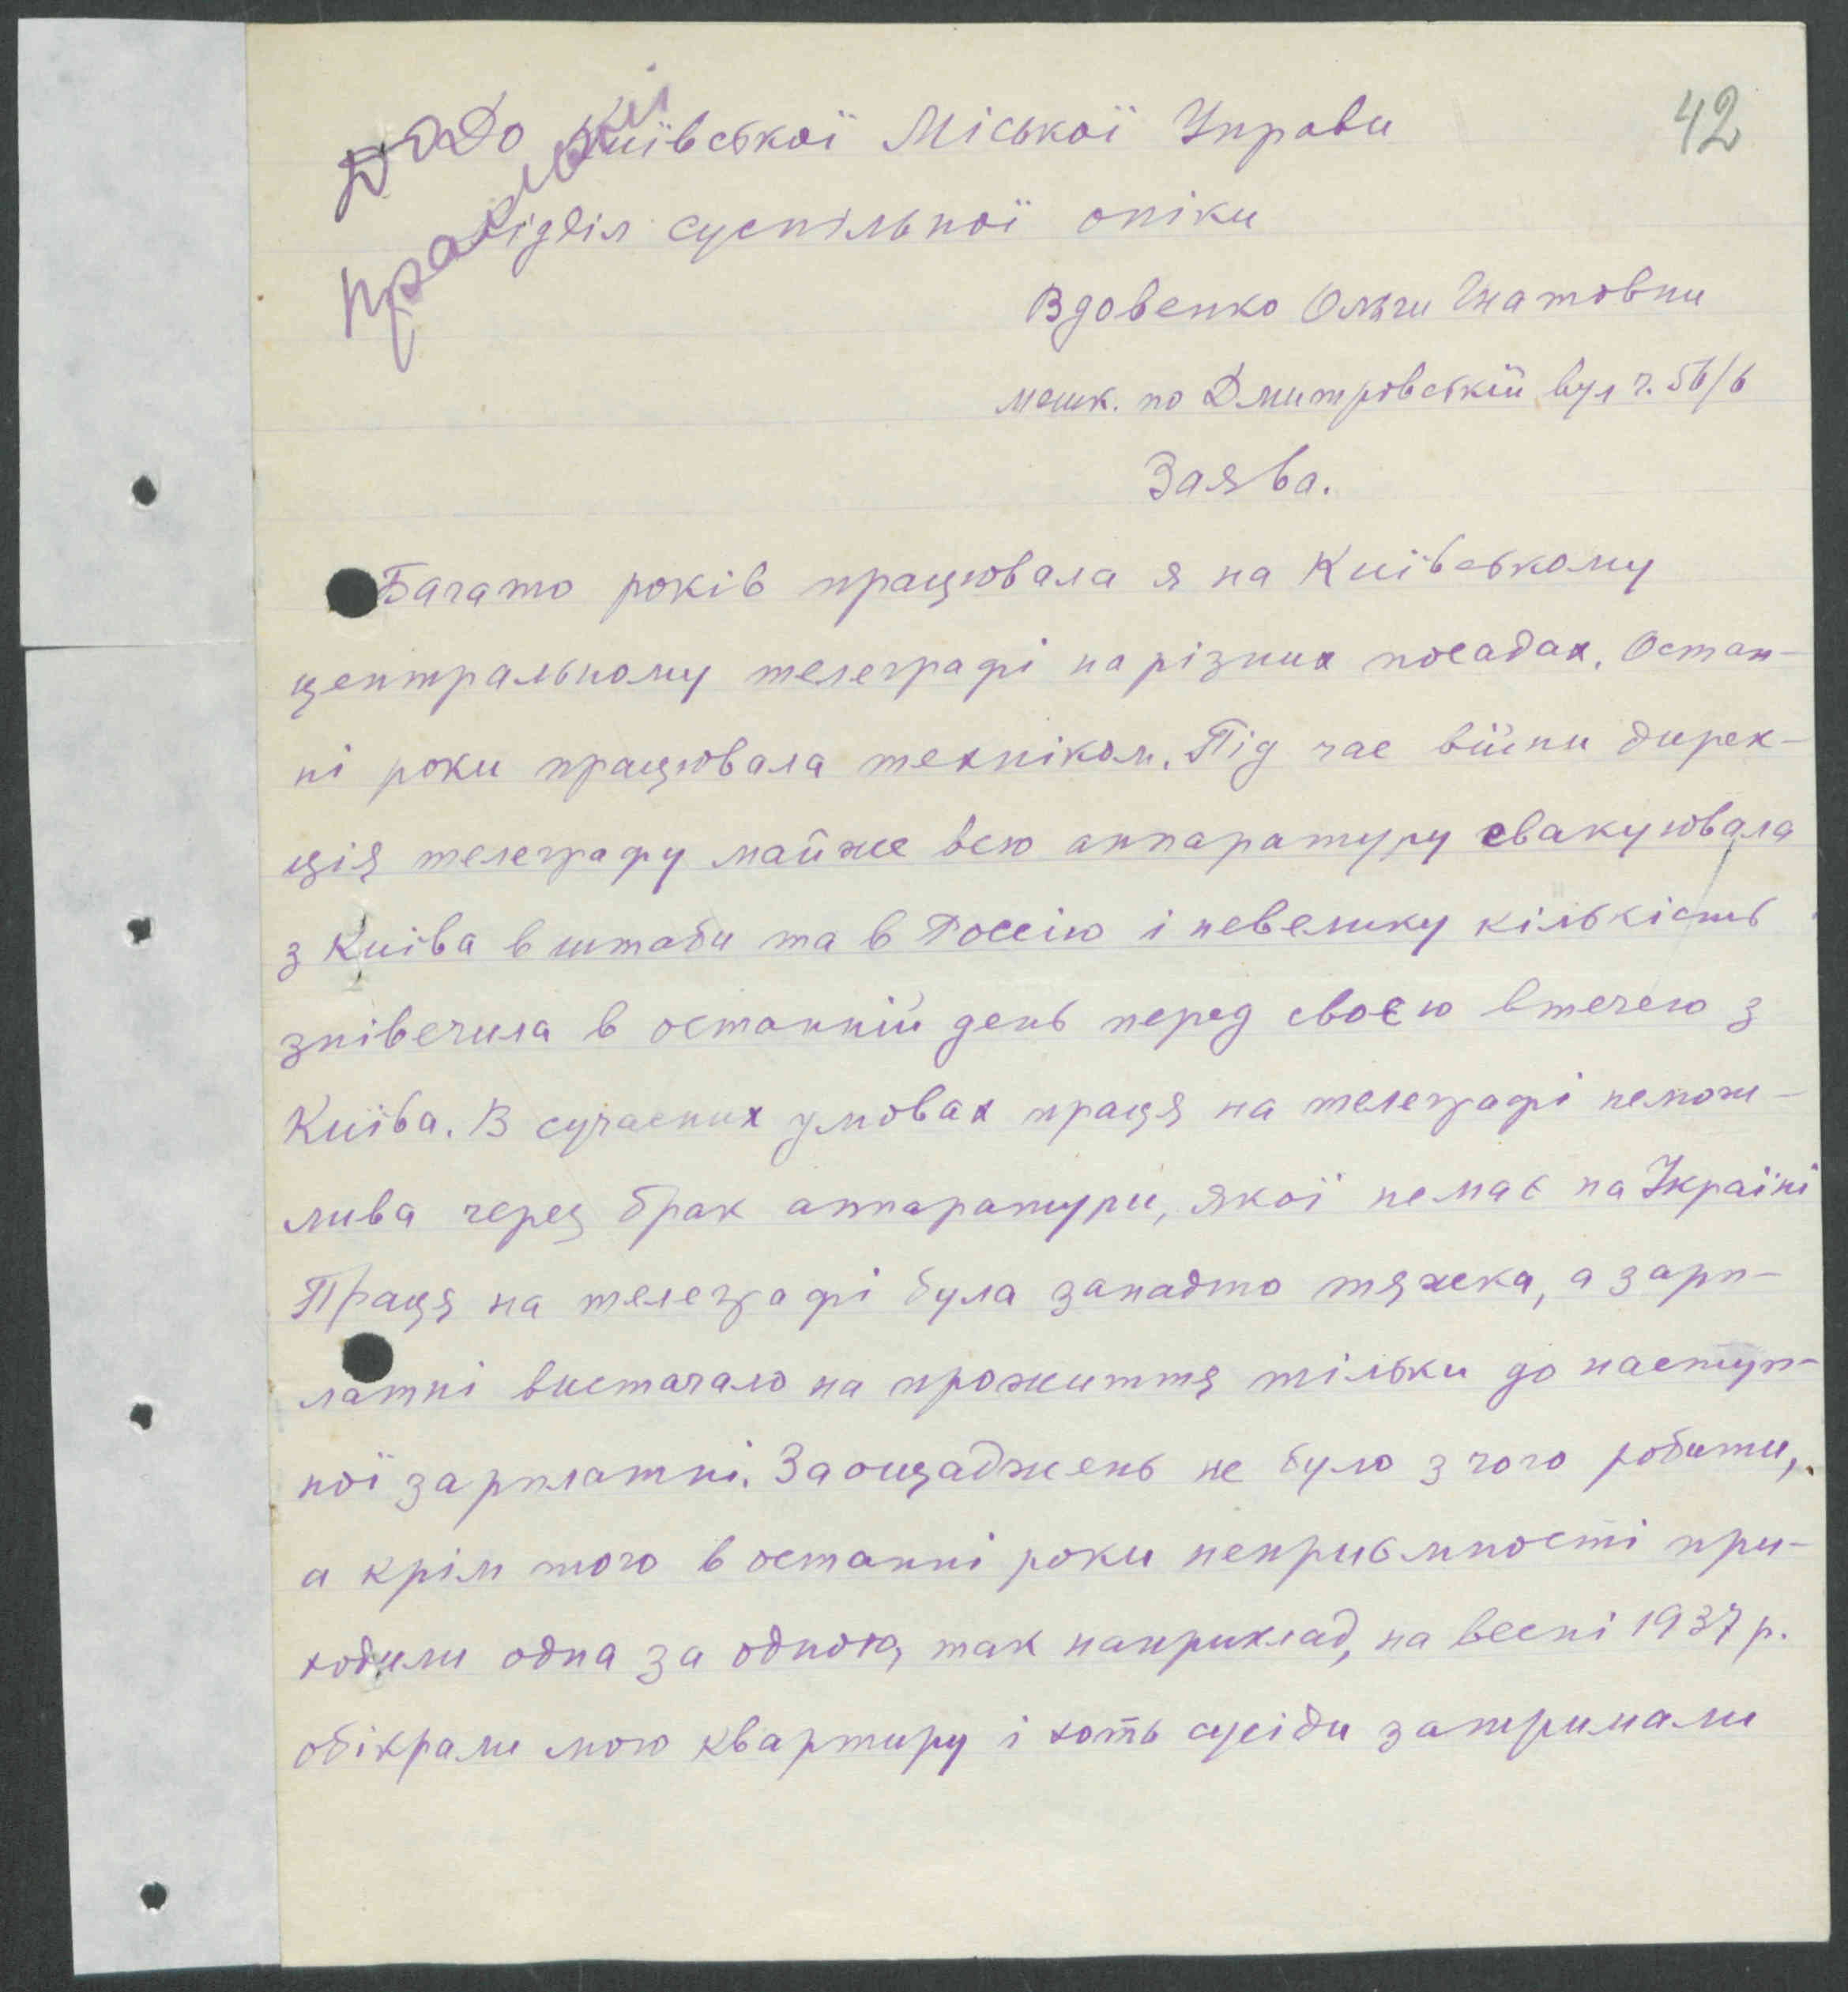 42
До Київської Міської Управи
Відділ суспільної опіки
Вдовенко Ольги Гнатовни
мешк. по Дмитровській вул ч. 56/6
Заява.
Багато років працювала я на Київському
центральному телеграфі на різних посадах. Остан-
ні роки працювала техніком. Під час війни дирек-
ція телеграфу майже всю аппаратуру евакуювала
з Київа в штаби та в Россію і невелику кількість
знівечила в останній день перед своєю втечею з
Київа. В сучасних умовах праця на телеграфі немож-
лива через брак аппаратури, якої немає на Україні
Праця на телеграфі була занадто тяжка, а зарп-
латні вистачало на прожиття тільки до наступ-
ної зарплатні. Заощаджень не було з чого робити,
а крім того в останні роки неприємності при-
ходили одна за одною, так наприклад, на весні 1937 р.
обікрали мою квартиру і хоть сусіди затримали